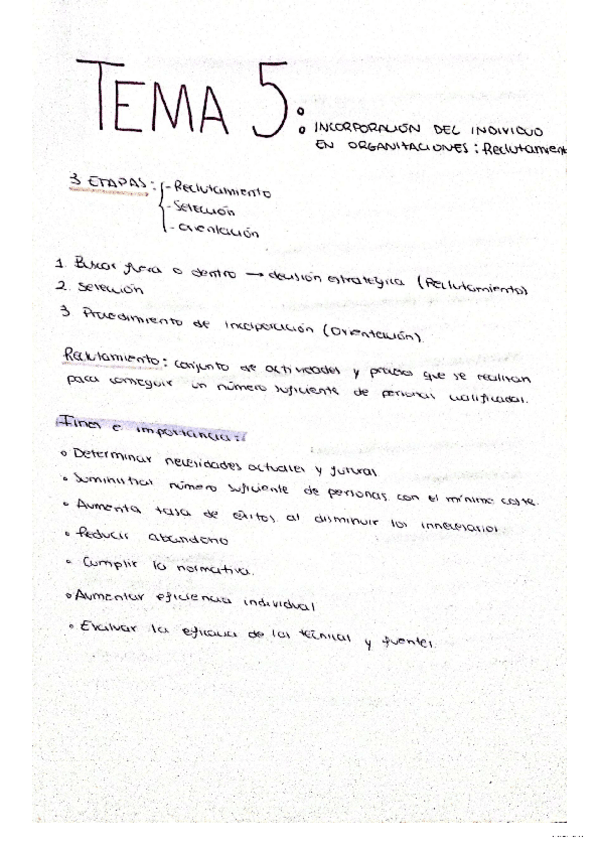 TEMA 5:
INCORPORACIÓN DEL INDIVIDUO
EN ORGANIZACIONES: Reclutament
3 ETAPAS: - Reclutamiento
- Selección
- Orientación
1. Buscar fuera o dentro → decisión estratégica (Reclutamiento)
2. Selección
3 Procedimiento de incorporación (Orientación).
Reclutamiento: conjunto de actividades y procesos que se realizan
para conseguir un número suficiente de personas cualificadas.
Fines e importancia:
• Determinar necesidades actuales y futuras
• Suministrar número suficiente de personas con el mínimo coste.
• Aumenta tasa de éxitos al disminuir los innecesarios
• Reducir abandono
• Cumplir la normativa.
• Aumentar eficiencia individual
• Evaluar la eficacia de las técnicas y fuentes.